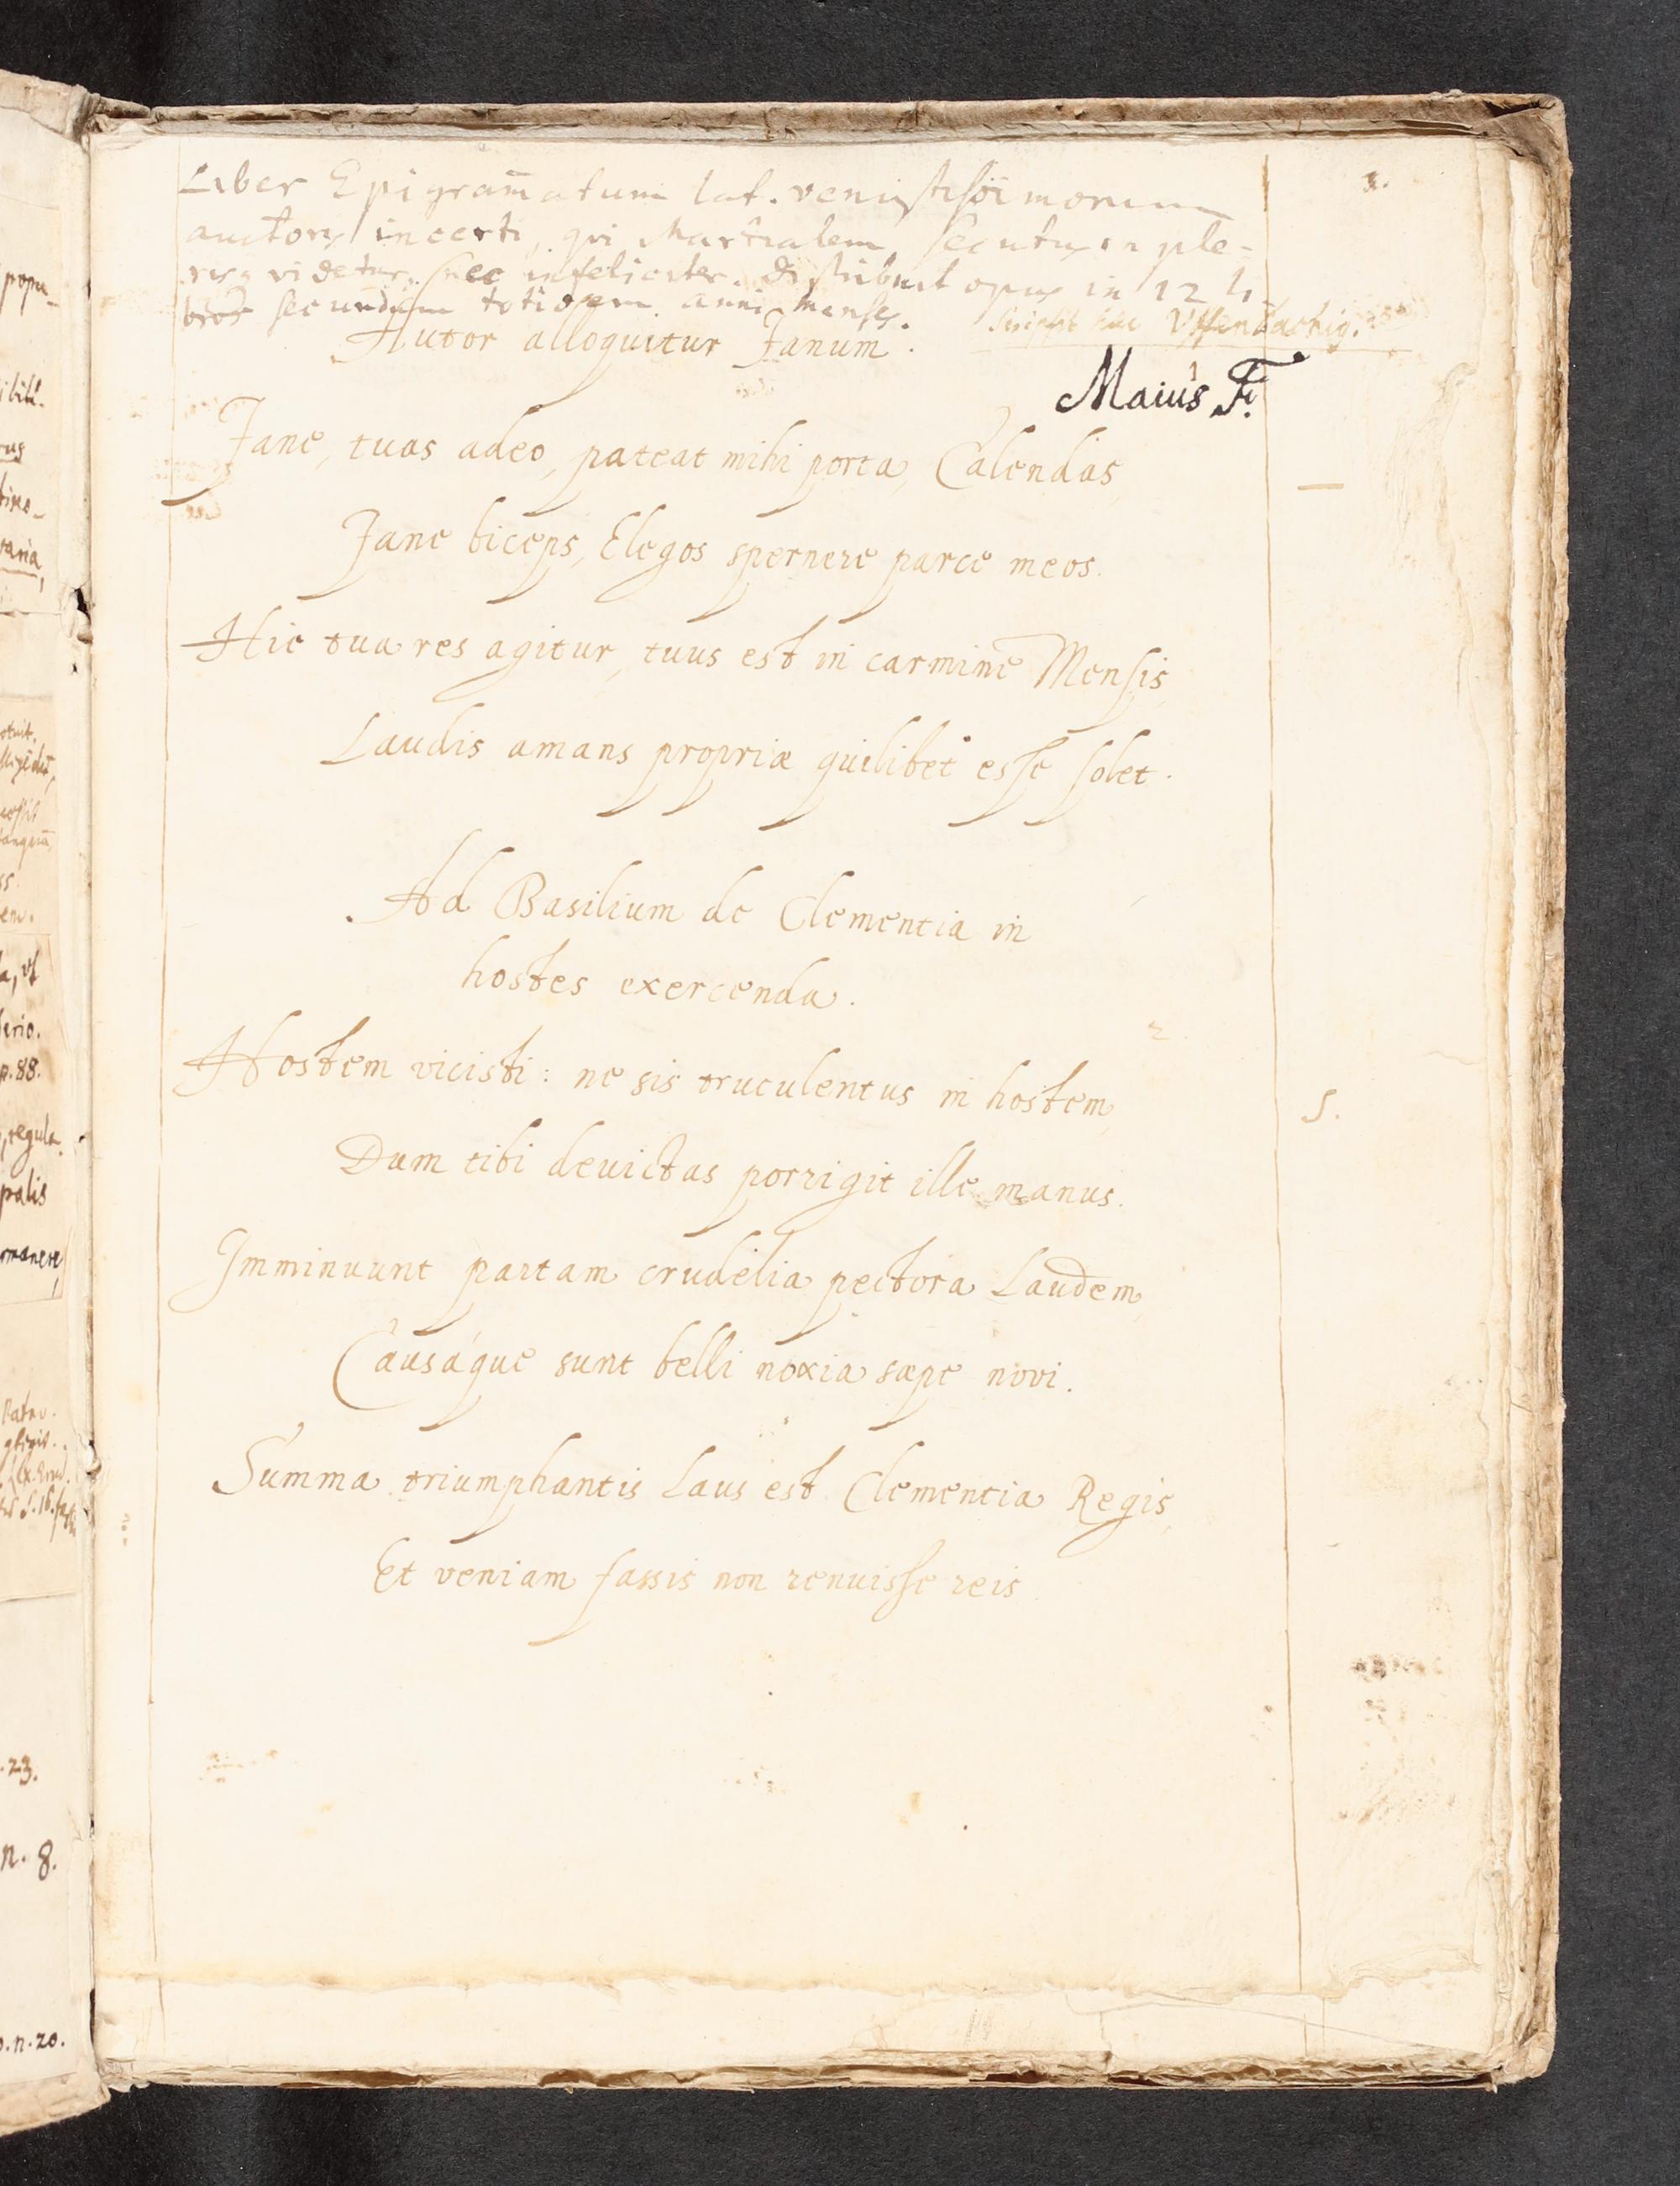 Liber Epigram̄atum lat. venustissimorum
auctoris incerti, qui Martialem secutus in ple-
risq videtur, nec infeliciter. Distribuit opus in 12 li-
bros secundum totidem anni menses. Scripsit hæc Uffenbachig.
Autor alloquitur Janum.
Maius F.
Jane, tuas adeo, pateat mihi porta, Calendas,
Jane biceps, Elegos spernere parce meos.
Hic tua res agitur, tuus est in carmine Mensis,
Laudis amans propriæ quilibet esse solet.
Ad Basilium de Clementia in
hostes exercenda.
Hostem vicisti: ne sis truculentus in hostem,
Dum tibi devictas porrigit ille manus.
Imminuunt partam crudelia pectora Laudem,
Causáque sunt belli noxia sæpe novi.
Summa triumphantis Laus est Clementia Regis,
Et veniam fassis non renuisse reis.
S.
p.88.
regula
palis
.23.
n. 8.
n.20.